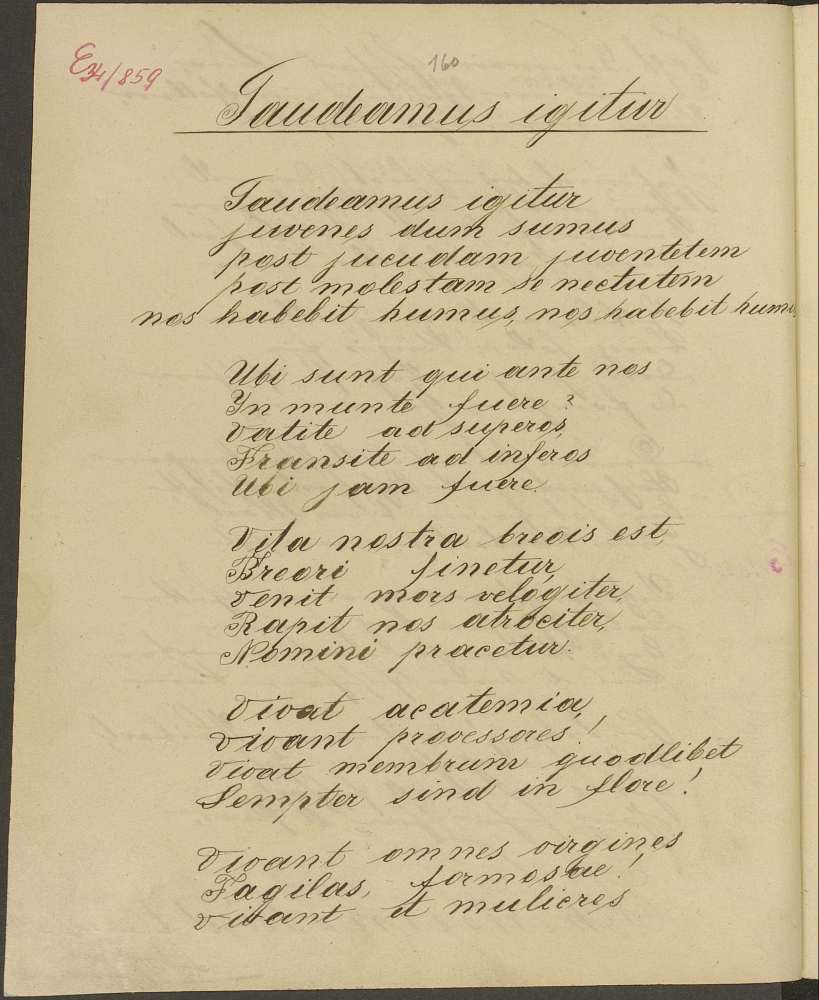 E 34/859
160
Gaudeamus igitur
Gaudeamus igitur
juvenes dum sumus
post jucudam juventetem
post molestam se nectutem
nos habebit humus, nos habebit humus,
Ubi sunt qui ante nos
In munte fuere?
Vatite ad superos,
Transite ad inferos
Ubi jam fuere.
Vita nostra brevis est,
Brevri finetur,
Venit mors velogiter,
Rapit nos atrociter,
Nemini pracetur.
Vivat acatemia,
Vivant provessores!
Vivat membrum quodlibet
Sempter sind in flore!
Vivant omnes virgines
Fagilas, formosae!
Vivant et mulieres